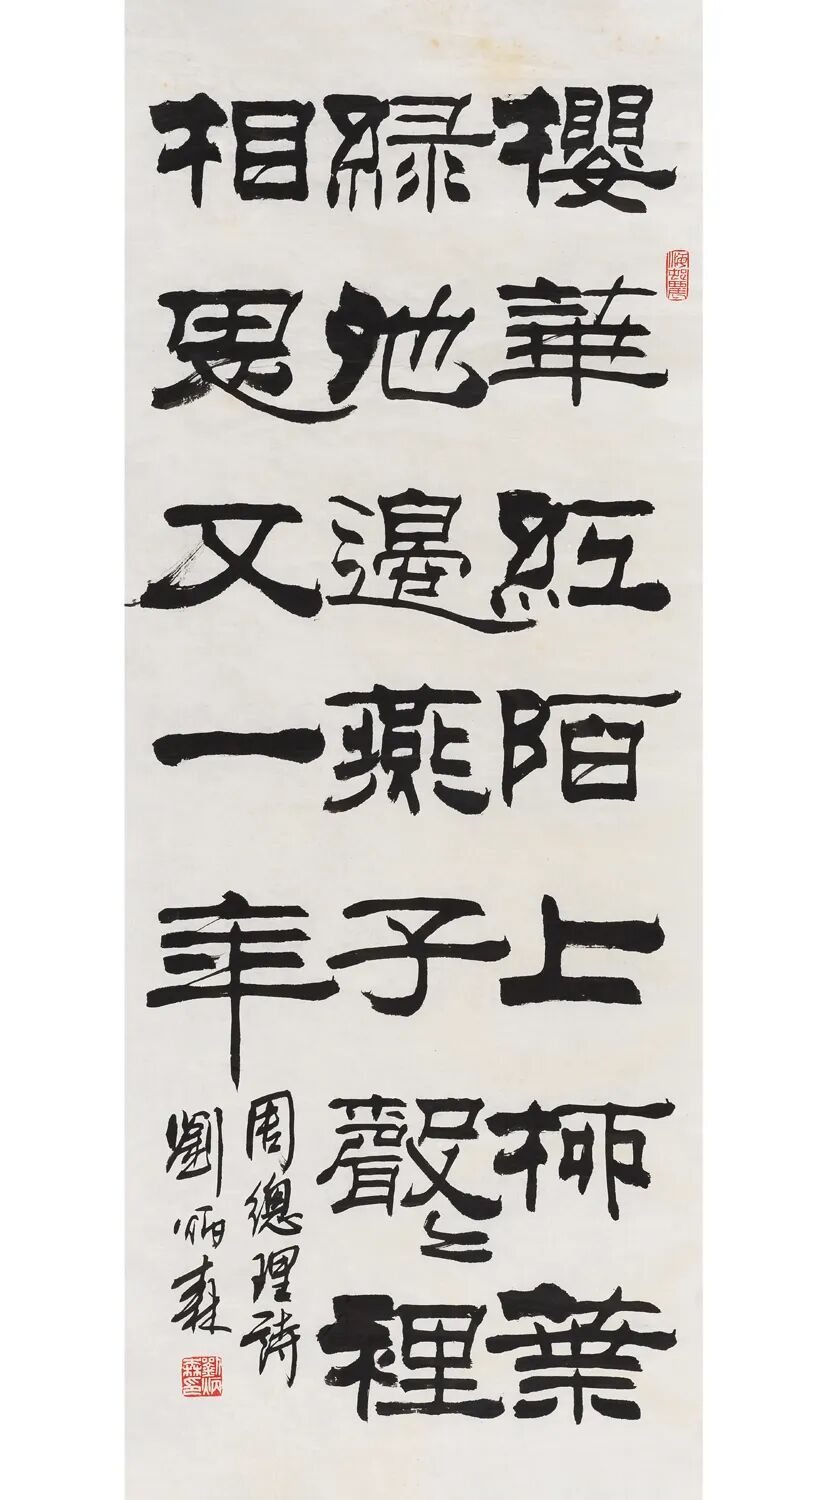 櫻華紅陌上柳葉
綠池邊燕子聲〻裡
相思又一年
周總理詩
劉炳森
劉炳森印